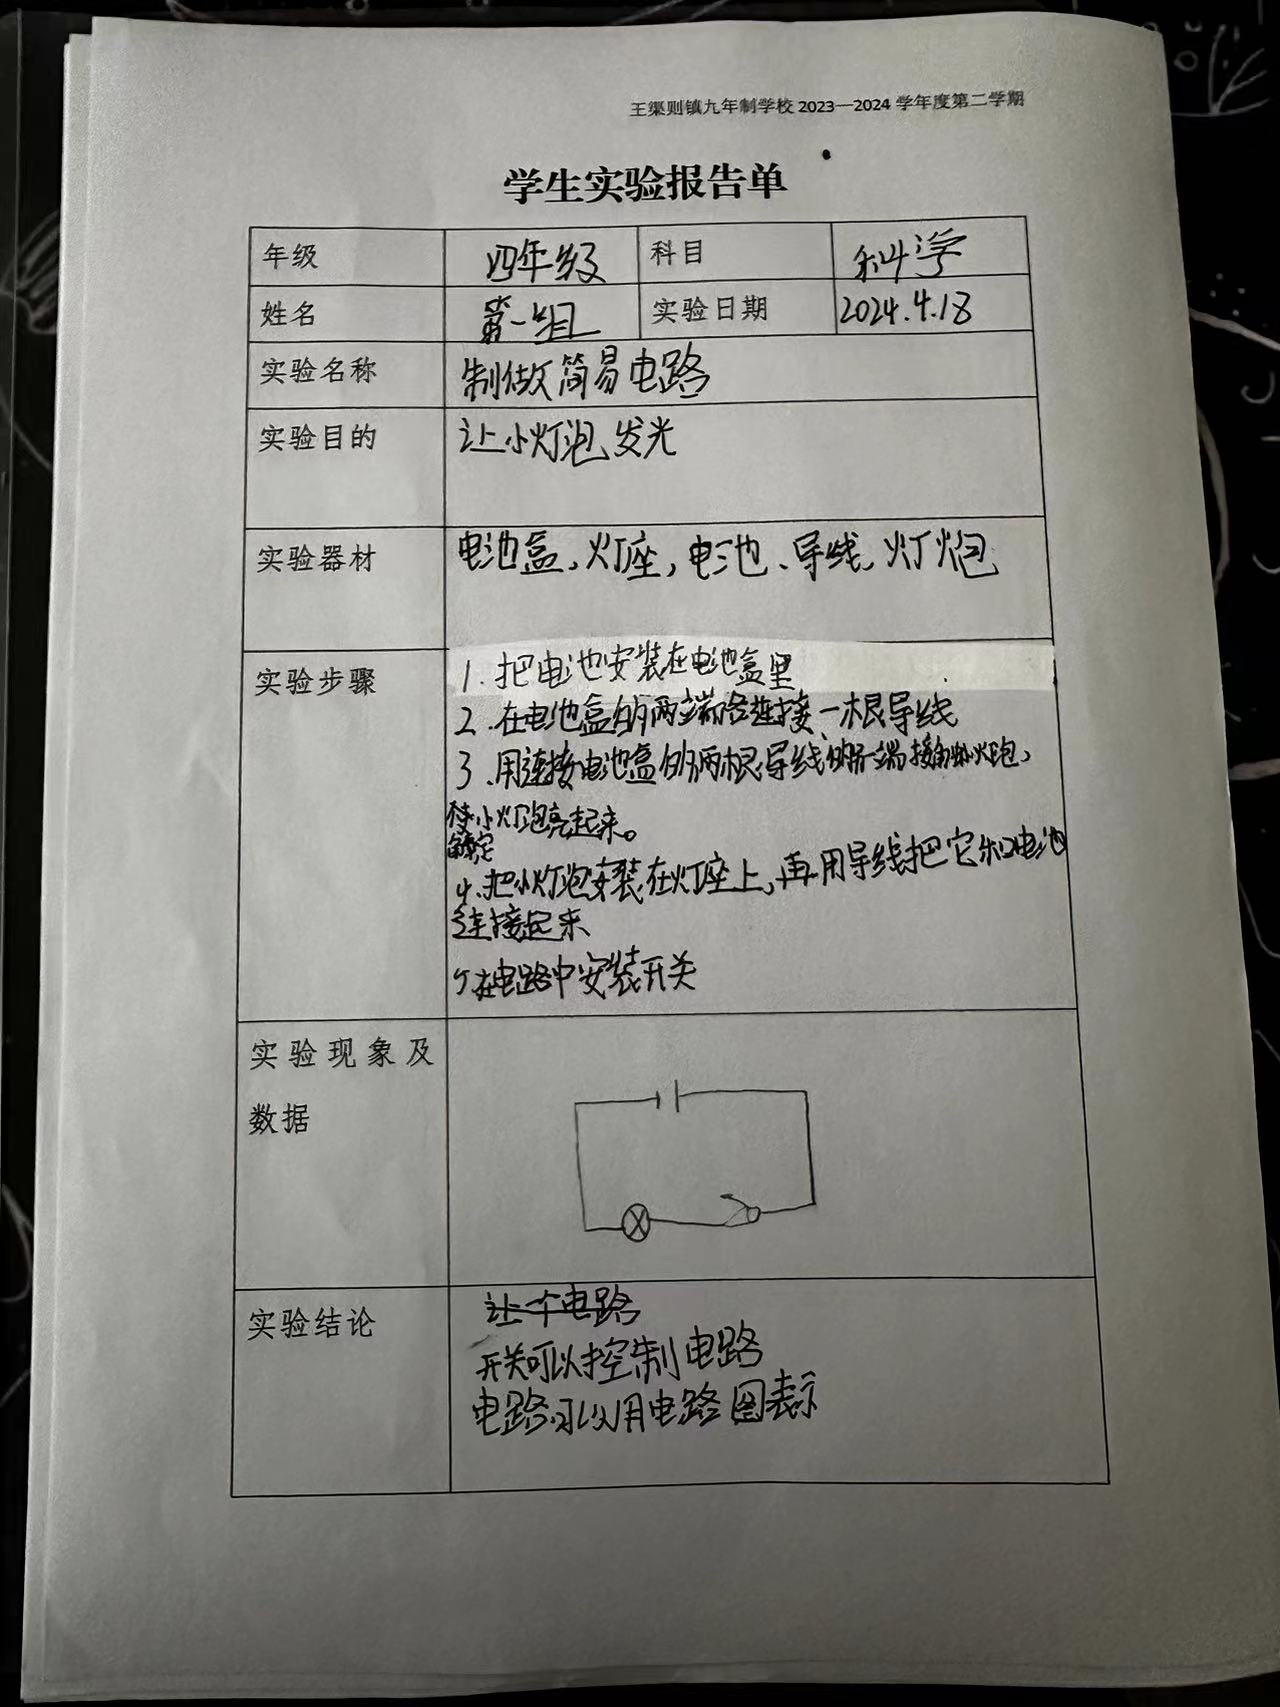 王渠则镇九年制学校 2023—2024 学年度第二学期
学生实验报告单
年级 四年级 科目 科学
姓名 第一组 实验日期 2024.4.18
实验名称 制做简易电路
实验目的 让小灯泡发光
实验器材 电池盒、灯座，电池、导线、灯炮
实验步骤 1.把电池安装在电池盒里
2.在电池盒的两端各连接一根导线
3.用连接电池盒的两根导线的另一端接触小灯泡，
使小灯泡亮起来。
4.把小灯泡安装在灯座上，再用导线把它和电池
连接起来
5在电路中安装开关
实验现象及
数据
让一个电路
实验结论 开关可以控制电路
电路可以用电路图表示